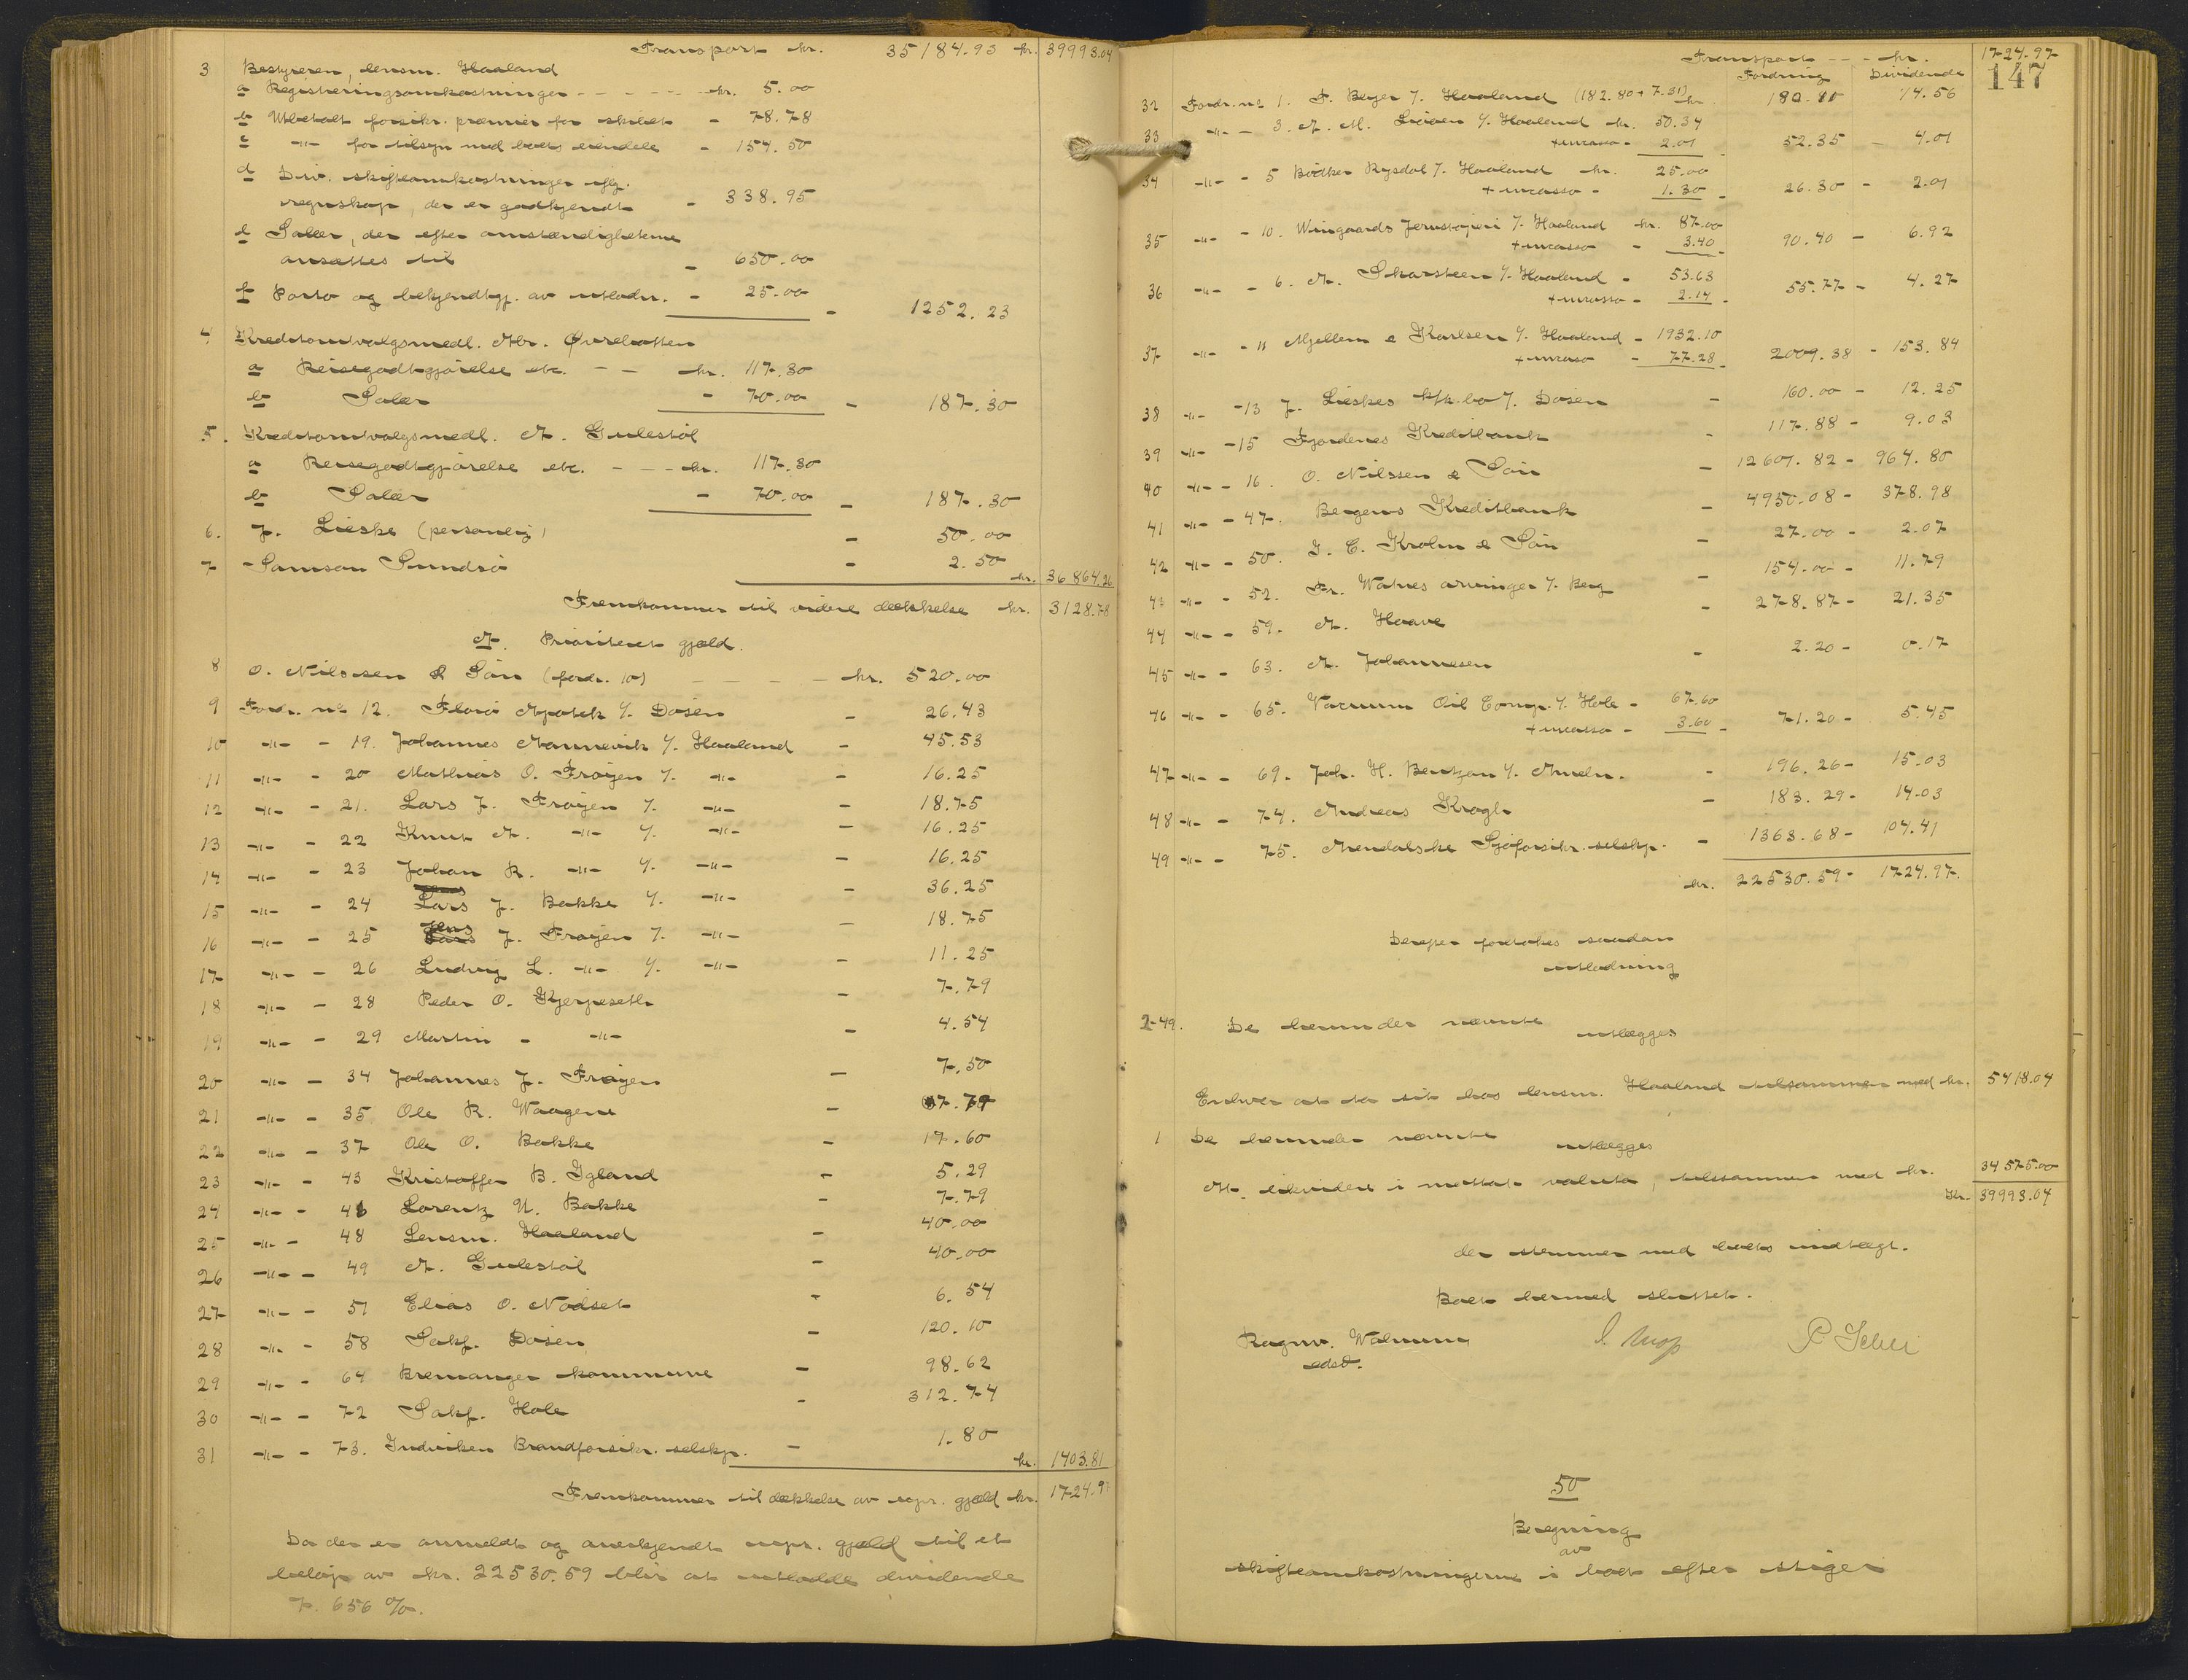 Transport kr. 35184.93 kr. 39993.04
3 Bestyreren, lensm. Haaland
a Registreringsomkostninger - - - - - - kr. 5.00
b Utbetalt forsikr. præmier for skibet - 78.78
c -"- for tilsyn med boets eiendele - 154.50
d Div. skifteomkostninger iflg.
regnskap, der er godkjendt - 338.95
e Salær, der efter omstændigheterne
ansættes til - 650.00
f Porto og bekjendtgj. av utlodn. - 25.00 - 1252.23
4 Kreditorutvalgsmedl. Abr. Øvrebotten
a Reisegodtgjørelse etc. - - kr. 117.30
b Salær - 70.00 - 187.30
5. Kreditorutvalgsmedl. A. Gulestøl
a Reisegodtgjørelse etc. - - - kr. 117.30
b Salær - 70.00 - 187.30
6. J. Lieske (personlig) - 50.00
7 Samson Sundsø - 2.50 kr. 36864.26
Fremkommer til videre dækkelse kr. 3128.78
A. Prioritert gjæld.
8 O. Nilssen & Søn (fordr. 10) - - - - - kr. 520.00
9 Fordr. no 12. Florø Apotek v. Døsen - 26.43
10 -"- - 19. Johannes Nannevik v. Haaland - 45.53
11 -"- - 20 Mathias O. Frøyen v. -"- - 16.25
12 -"- - 21. Lars J. Frøyen v. -"- - 18.75
13 -"- - 22 Knut A. -"- v. -"- - 16.25
14 -"- - 23 Johan R. -"- v. -"- - 16.25
15 -"- - 24 Lars J. Bakke v. -"- - 36.25
16 -"- - 25 Jens J. Frøyen v. -"- - 18.75
17 -"- - 26 Ludvig L. -"- v. -"- - 11.25
18 -"- - 28 Peder O. Kjerpeseth - 7.79
19 -"- - 29 Martin - -"- - 4.54
20 -"- - 34 Johannes J. Frøyen - 7.50
21 -"- - 35 Ole R. Waagene - 7.79
22 -"- - 37 Ole O. Bakke - 17.60
23 -"- - 43 Kristoffer B. Igland - 5.29
24 -"- - 46 Lorentz N. Bakke - 7.79
25 -"- - 48 Lensm. Haaland - 40.00
26 -"- - 49 A. Gulestøl - 40.00
27 -"- - 51 Elias O. Nødset - 6.54
28 -"- - 58 Sakf. Døsen - 120.10
29 -"- - 64 Bremanger kommune - 98.62
30 -"- - 72 Sakf. Hole - 312.74
31 -"- - 73. Indviken Brandforsikr. selskp. - 1.80 kr. 1403.81
Fremkommer til dækkelse av upr. gjæld kr. 1724.97
Da der er anmeldt og anerkjendt upr. gjæld til et
beløp av kr. 22530.59 blir at utlodde dividende
7.656 %.
Transport - - - kr. 1724.97
147
Fordring Dividende
32 Fordr. no 1. F. Beyer v. Haaland (182.80 + 7.31) kr. 14.56
33 -"- - 3. A. M. v. Haaland kr. 50.34
+ incasso - 2.01 - 52.35 - 4.01
34 -"- - 5 Bødker Rysdal v. Haaland kr. 25.00
+ incasso - 1.30 - 26.30 - 2.01
35 -"- - 10. Wingaards Jernstøperi v. Haaland kr. 87.00
+ incasso - 3.40 - 90.40 - 6.92
36 -"- - 6. A. Skarsteen v. Haaland - 53.63
+ incasso - 2.14 - 55.77 - 4.27
37 -"- - 11 Mjellem & Karlsen v. Haaland - 1932.10
+ incasso - 77.28 - 2009.38 - 153.84
38 -"- - 13 J. Lieskes kfk.bo v. Døsen - 160.00 - 12.25
39 -"- - 15 Fjordenes Kreditbank - 117.88 - 9.03
40 -"- - 16. O. Nilssen & Søn - 12601.82 - 964.80
41 -"- - 47. Bergens Kreditbank - 4950.08 - 378.98
42 -"- - 50. J. C. Krohn & Søn - 27.00 - 2.07
43 -"- - 52. Fr. Walnes arvinger v. Berg - 154.00 - 11.79
44 -"- - 59. A. Haave - 278.87 - 21.35
45 -"- - 63. A. Johannesen - 2.20 - 0.17
46 -"- - 65. Vacuum Oil Comp. v. Hole - 67.60
+ incasso - 3.60 - 71.20 - 5.45
47 -"- - 69. Joh. H. Bentzon v. - 196.26 - 15.03
48 -"- - 74. Andreas Krogh - 183.29 - 14.03
49 -"- - 75. Arendalske Sjøforsikr. selskp. - 1363.68 - 104.41
kr. 22530.59 - 1724.97.
Derefter foretokes saadan
utlodning
2-49. De herunder nævnte
utlægges
Enhver at ta sit hos lensm. Haaland tilsammen med kr. 5418.04
1 De herunder nævnte
utlægges
At likvidere i mottat valuta, tilsammen med kr. 34575.00
Kr. 39993.04
der stemmer med boets indtægt.
Boet hermed sluttet.
Ragnv. Walnum
edsv.
50
Beregning
av
skifteomkostningerne i boet efter skiper